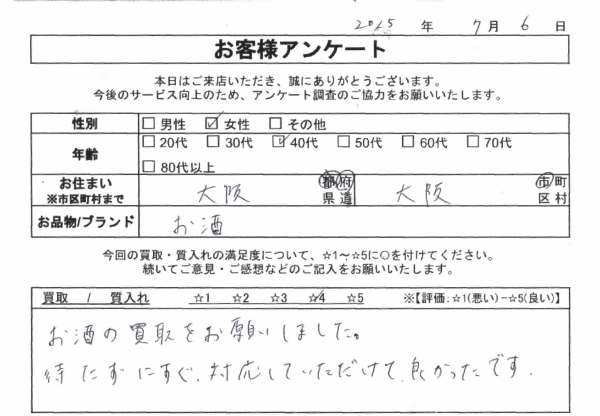 2025 年 7月 6 日
お客様アンケート
本日はご来店いただき、誠にありがとうございます。
今後のサービス向上のため、アンケート調査のご協力をお願いいたします。
性別 □ 男性 ☑ 女性 □ その他
年齢 □ 20代 □ 30代 ☑ 40代 □ 50代 □ 60代 □ 70代
□ 80代以上
お住まい ※市区町村まで 大阪 都府県道 大阪 市町区村
お品物/ブランド お酒
今回の買取・質入れの満足度について、☆1～☆5に○を付けてください。
続いてご意見・ご感想などのご記入をお願いいたします。
買取 / 質入れ ☆1 ☆2 ☆3 ☆4 ☆5 ※【評価:☆1(悪い)－☆5(良い)】
お酒の買取をお願いしました。
待たずにすぐ、対応していただけて、良かったです.